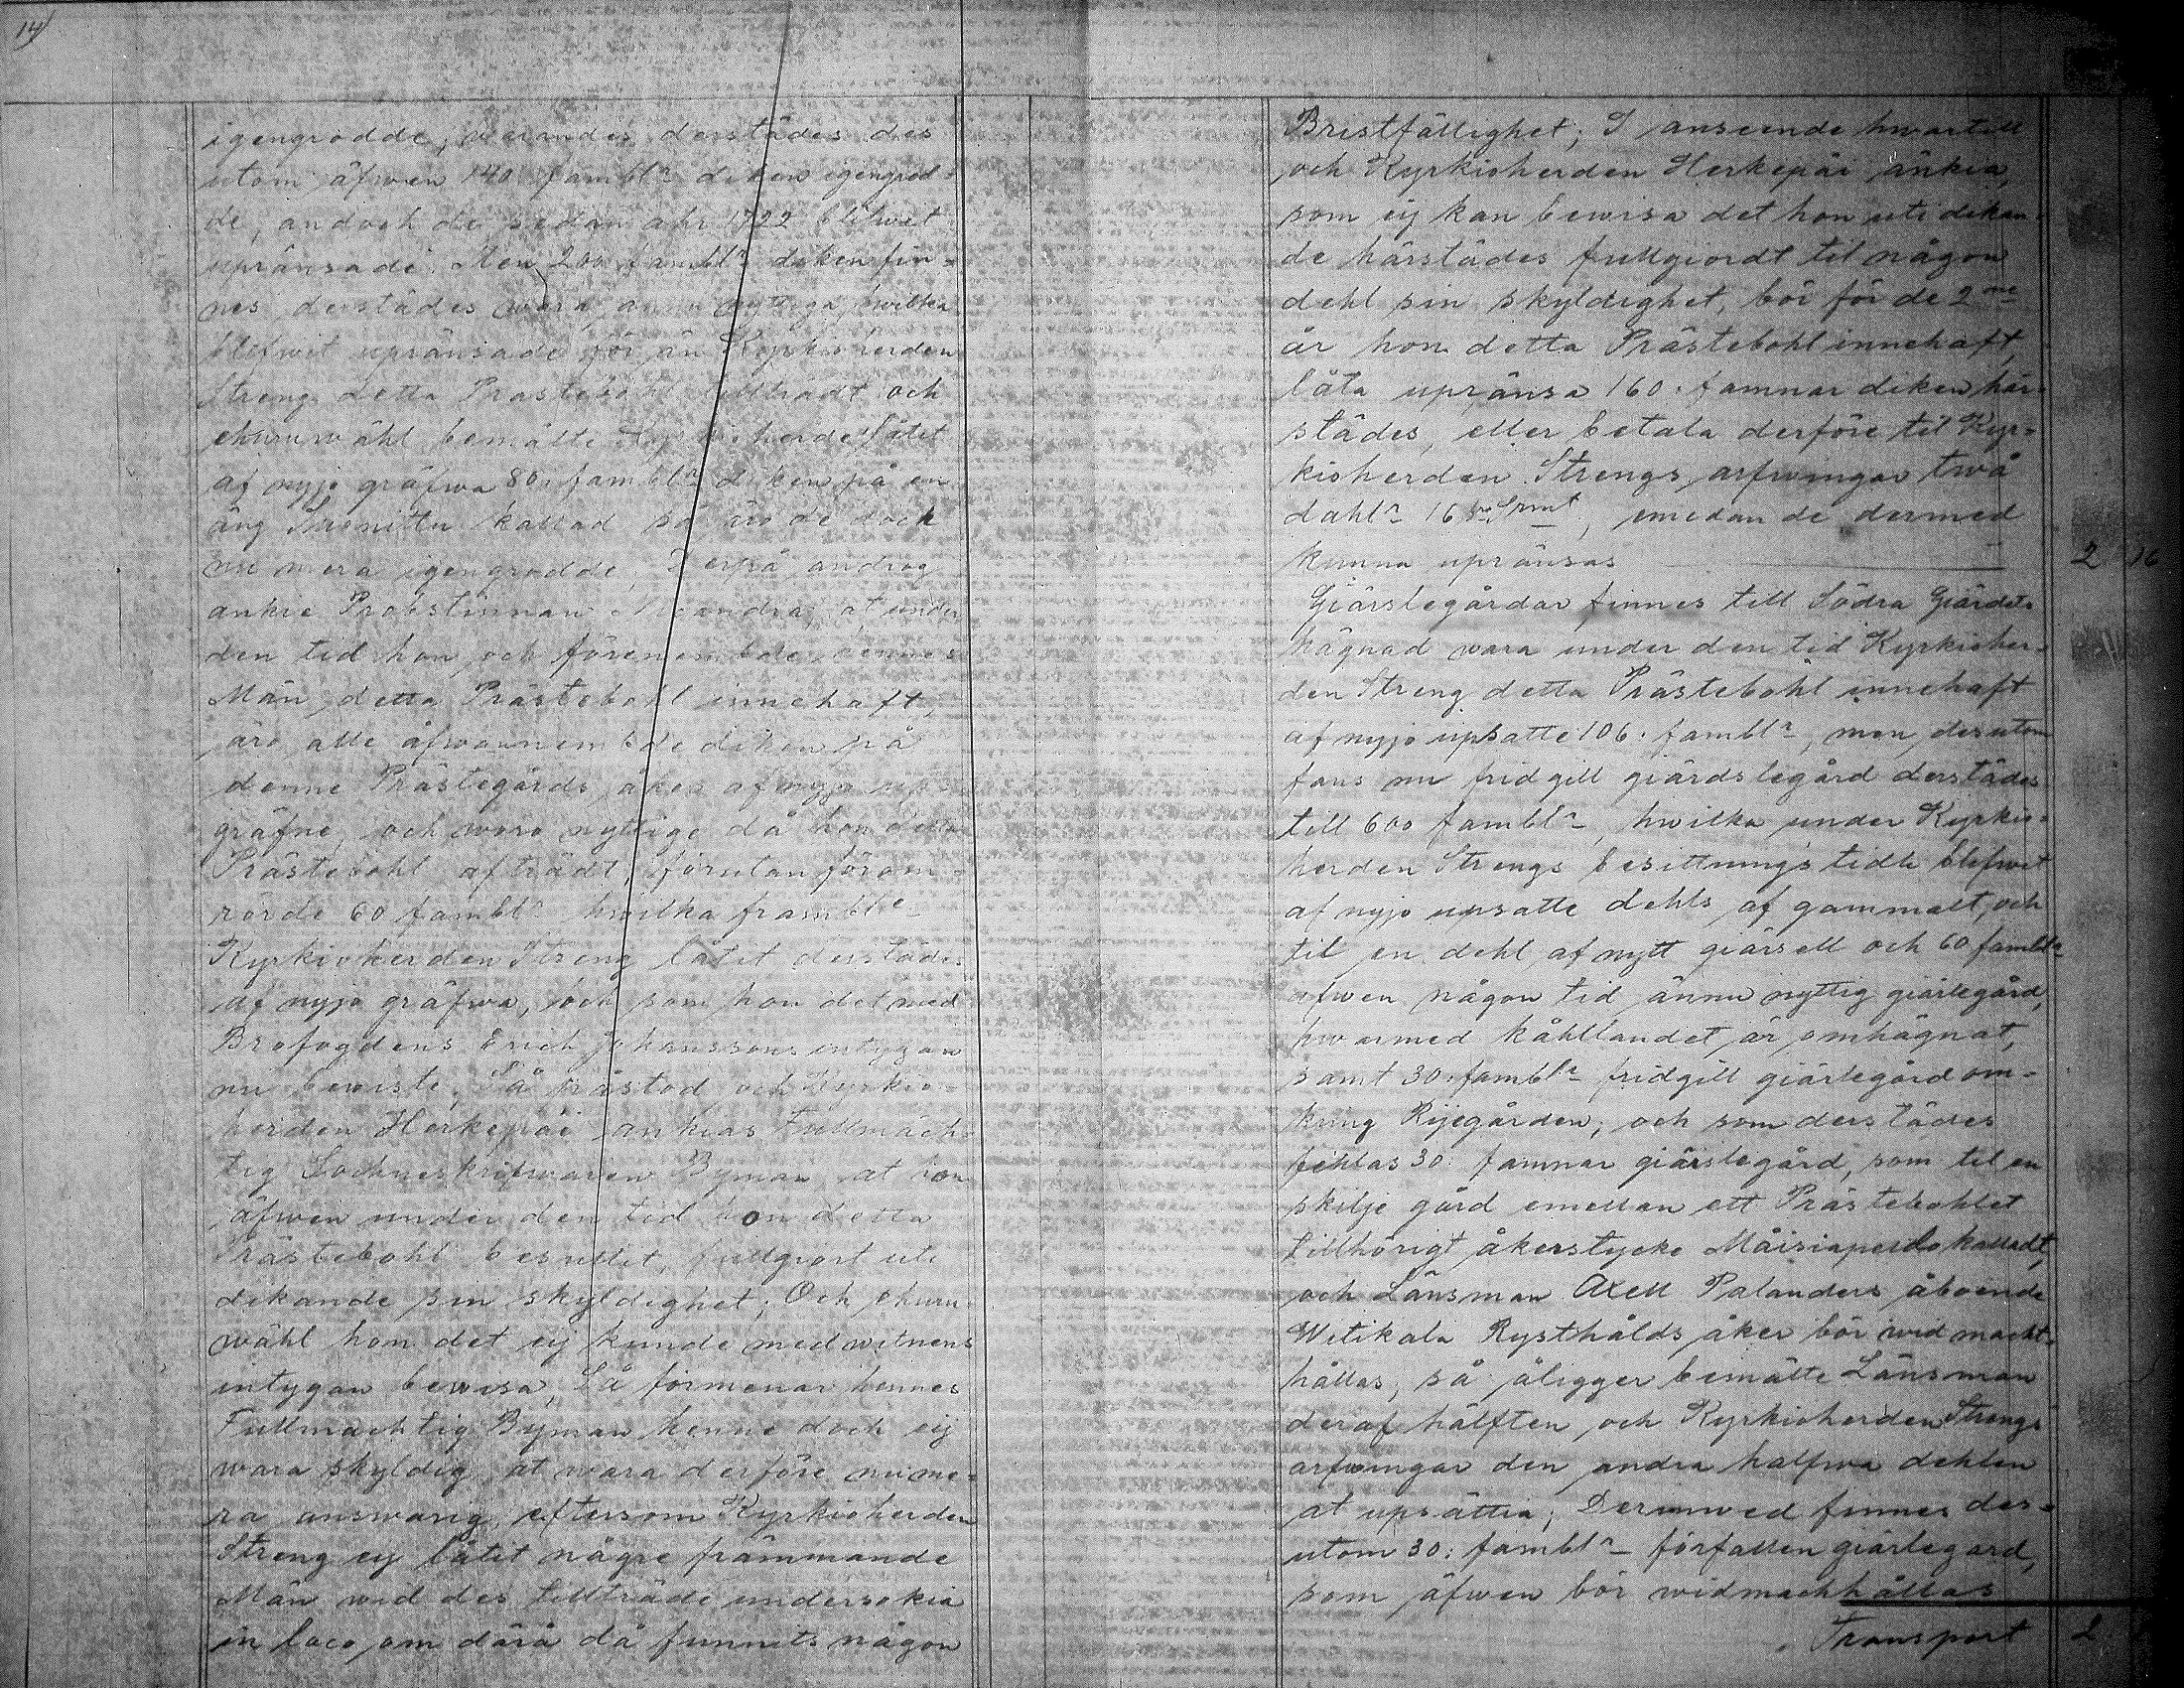 14/
igengrodde, warandes derstädes des
utom äfwen 140 fambl:r diken igengrod-
de, andoch de sedan åhr 1722 blifwet
upränsade. Men 200 fambl:r diken fin-
nes derstädes wara ännu nyttiga, hwilka
blifwit upränsade för än Kyrkioherden
Streng detta Prästebohl tillträdt och
ehuruwähl bemälte Kyrkioherde låtet
af nyjo gräfwa 80. fambl:r diken på en
äng kallad så äro de doch
nu mera igengrodde, androg
änkie Probstinnan at under
den tid hon och förenembde hennes
Män detta Prästebohl innehaft,
äro alle åfwannembde diken på
denne Prästegårds åker af nyjo up-
gräfne, och woro nyttige då hon detta
Prästebohl afträdt, förutan förom-
rörde 60 fambl:r hwilka framl:e
Kyrkioherden Streng låtit derstädes
af nyjo gräfwa, och som hon det med
Brofogdens Erich Johanssons intygan
nu bewiste, Så påstod och Kyrkio-
herden Herkepäi änkias Fullmäch-
tig Sochneskrifwaren Byman at hon
äfwen under den tid hon detta
Prästebohl besuttit, fullgiort uti
dikande sin skyldighet; Och ehuru
wähl hon det ej kunde med witnens
intygan bewisa, Så förmenar hennes
Fullmächtig Byman henne doch eij
wara skyldig at wara derföre nume-
ra answarig, eftersom Kyrkioherden
Streng ey låtit någre främmande
Män wid des tillträde undersökia
in loco om därå då funnits någon
Bristfällighet; I anseende hwartill
och Kyrkioherden Herkepäi änkia,
som eij kan bewisa det hon uti dikan-
de härstädes fullgiordt til någon
dehl sin skyldighet, bör för de 2:ne
år hon detta Prästebohl innehaft,
låta upränsa 160. famnar diken här-
städes, eller betala derföre til Kyr-
kioherden Strengs arfwingar twå
dahl:r 16 Smt, emedan de dermed
kunna upränsas 2 16
Giärslegårdar finnes till Södra Giärdets
hägnad wara under den tid Kyrkioher-
den Streng detta Prästebohl innehaft
af nyjo upsatte 106. fambl:r, men desutom
fans nu fridgill giärdslegård derstädes
till 600 fambl:r, hwilka under Kyrkio-
herden Strengs besittnings tidh blifwet
af nyjo upsatte dehls af gammalt, och
til en dehl af nytt giärsell och 60 fambl:r
äfwen någon tid ännu nyttig giärlegård,
hwarmed kåhllandet är omhägnat,
samt 30. fambl:r fridgill giärlegård om-
kring Rijegården; och som derstädes
fehlas 30: famnar giärslegård, som til en
skilje gård emellan ett Prästebohlet
tillhörigt åkerstycke Måisiapeldo kalladt,
och Länsman Axell Palanders åboende
Witikala Rysthålds åker bör widmacht-
hållas, så åligger bemälte Länsman
deraf hälften och Kyrkioherden Strengs
arfwingar den andra halfwa dehlen
at upsättia; Derinwed finnes des-
utom 30: fambl:r förfallen giärlegård,
som äfwen bör widmachhållas
Transport 2